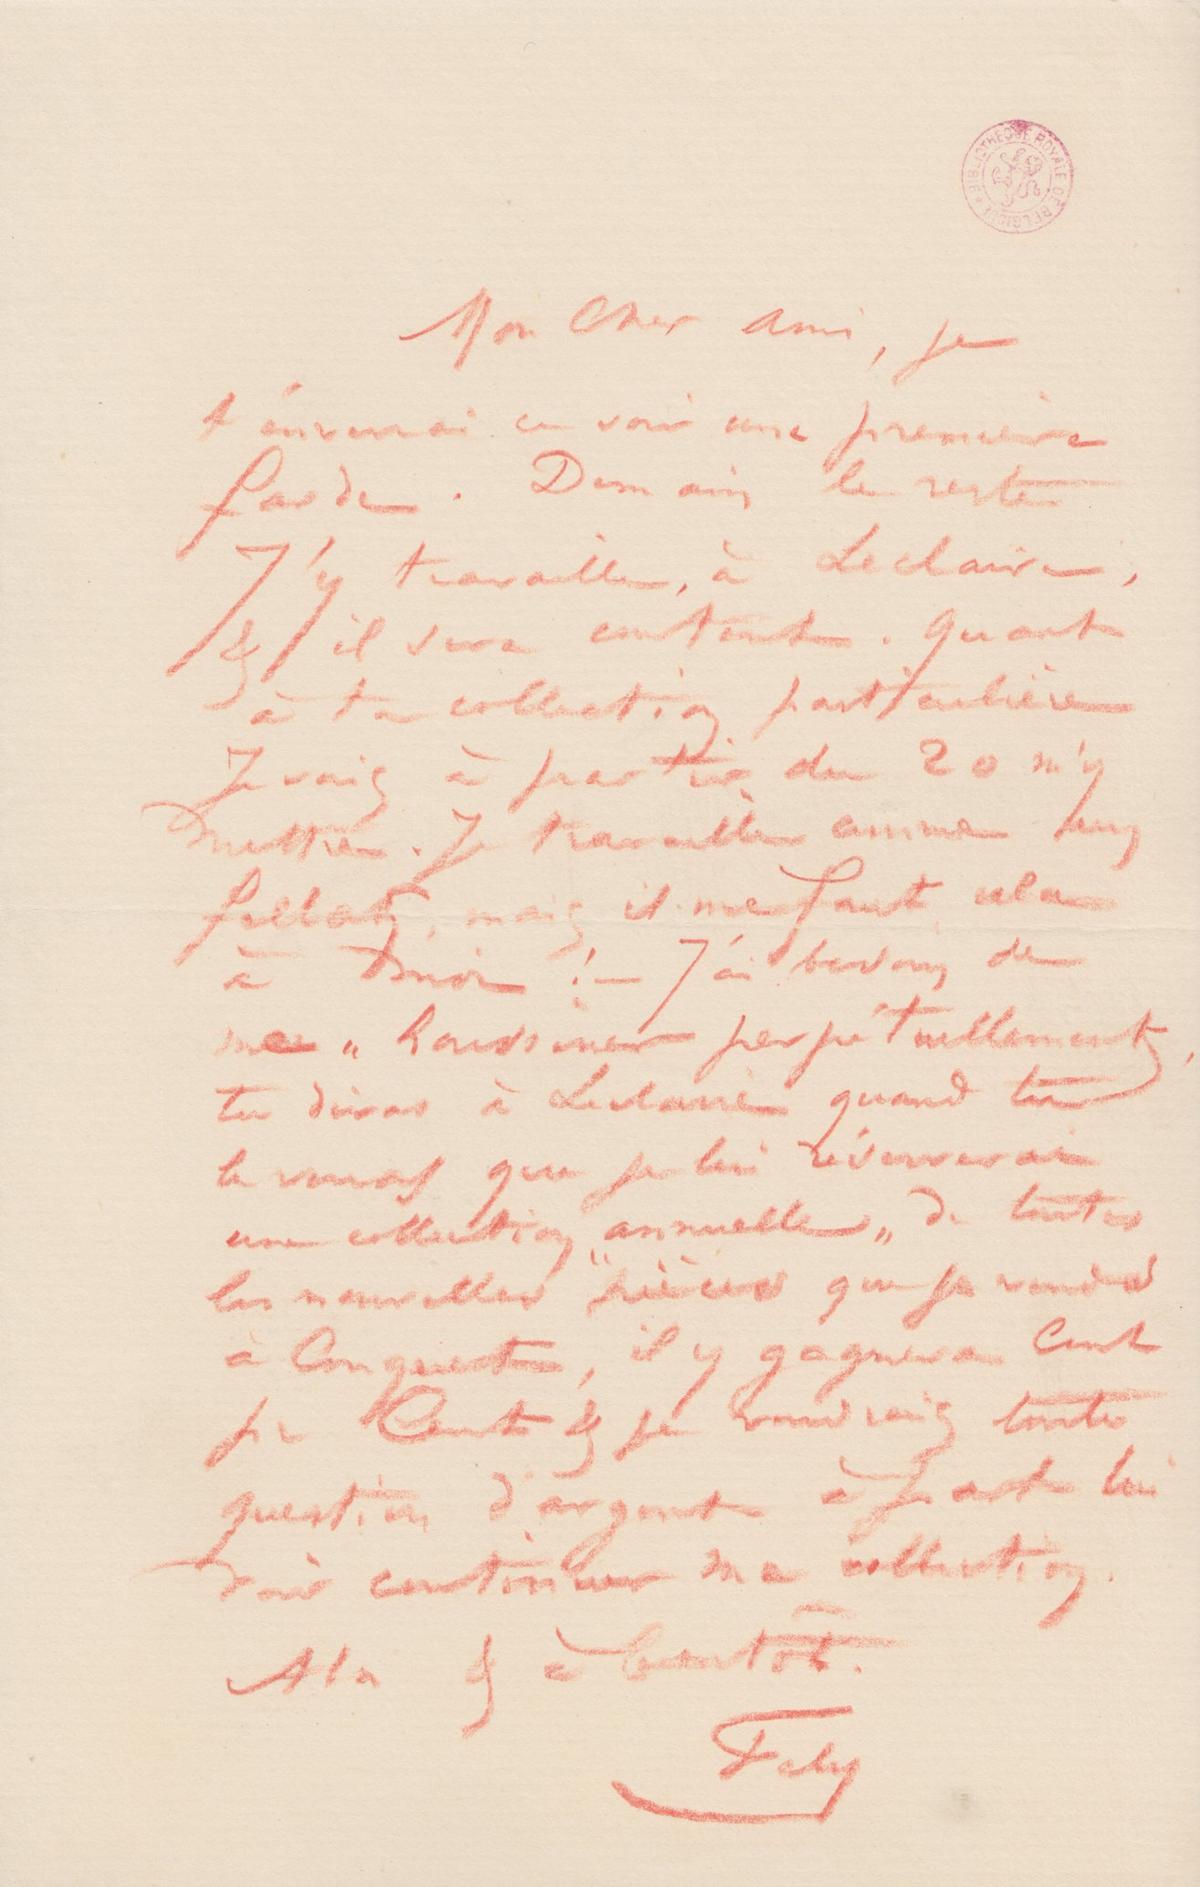 BIBLIOTHEQUE ROYALE DE BELGIQUE
Mon Cher Ami, je
t'enverrai ce soir une première
farde. Demain le reste
J'y travaille, à Leclaire,
& il sera content. Quant
à ta collection particulière
Je vais à partir du 20 m'y
mettre. Je travaille comme un
fellah, mais il me faut cela
à moi! — J'ai besoin de
me " houssiner perpétuellement,
tu diras à Leclaire quand tu
le verras que je lui réserverai
une collection "annuelle" de toutes
les nouvelles pièces que je vends
à Conquet, il y gagnera Cent
pr Cent & je voudrais toute
question d'argent à part lui
voir continuer ma collection.
A ta & à bientôt.
Fély